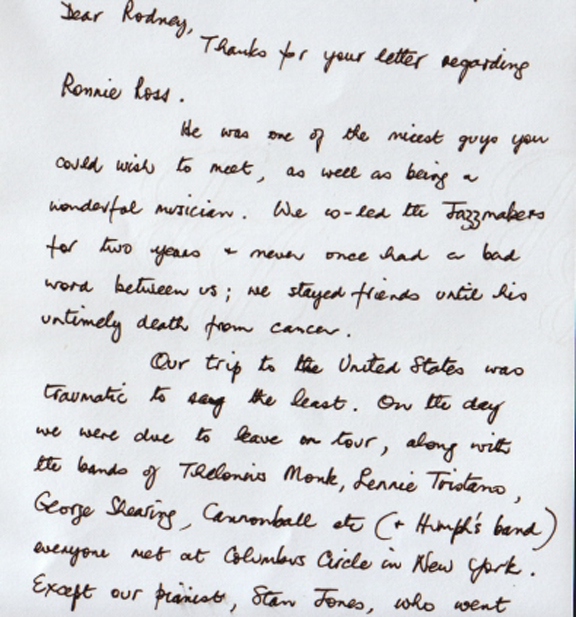 Dear Rodney,
Thanks for your letter regarding
Ronnie Ross.
He was one of the nicest guys you
could wish to meet, as well as being a
wonderful musician. We co-led the Jazzmakers
for two years + never once had a bad
word between us; we stayed friends until his
untimely death from cancer.
Our trip to the United States was
traumatic to say the least. On the day
we were due to leave on tour, along with
the bands of Thelonius Monk, Lennie Tristano,
George Shearing, Cannonball etc (+ Humph's band)
everyone met at Columbus Circle in New York.
Except our pianist, Stan Jones, who went